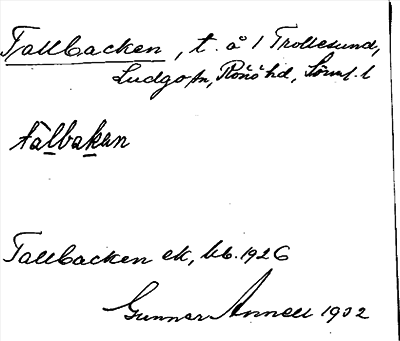 Tallbacken, t. å 1 Trollesund,
Ludgo sn, Rönö hd, Söml. l
tàlbakan
Tallbacken ek, kb. 1926
Gunnar Annell 1932